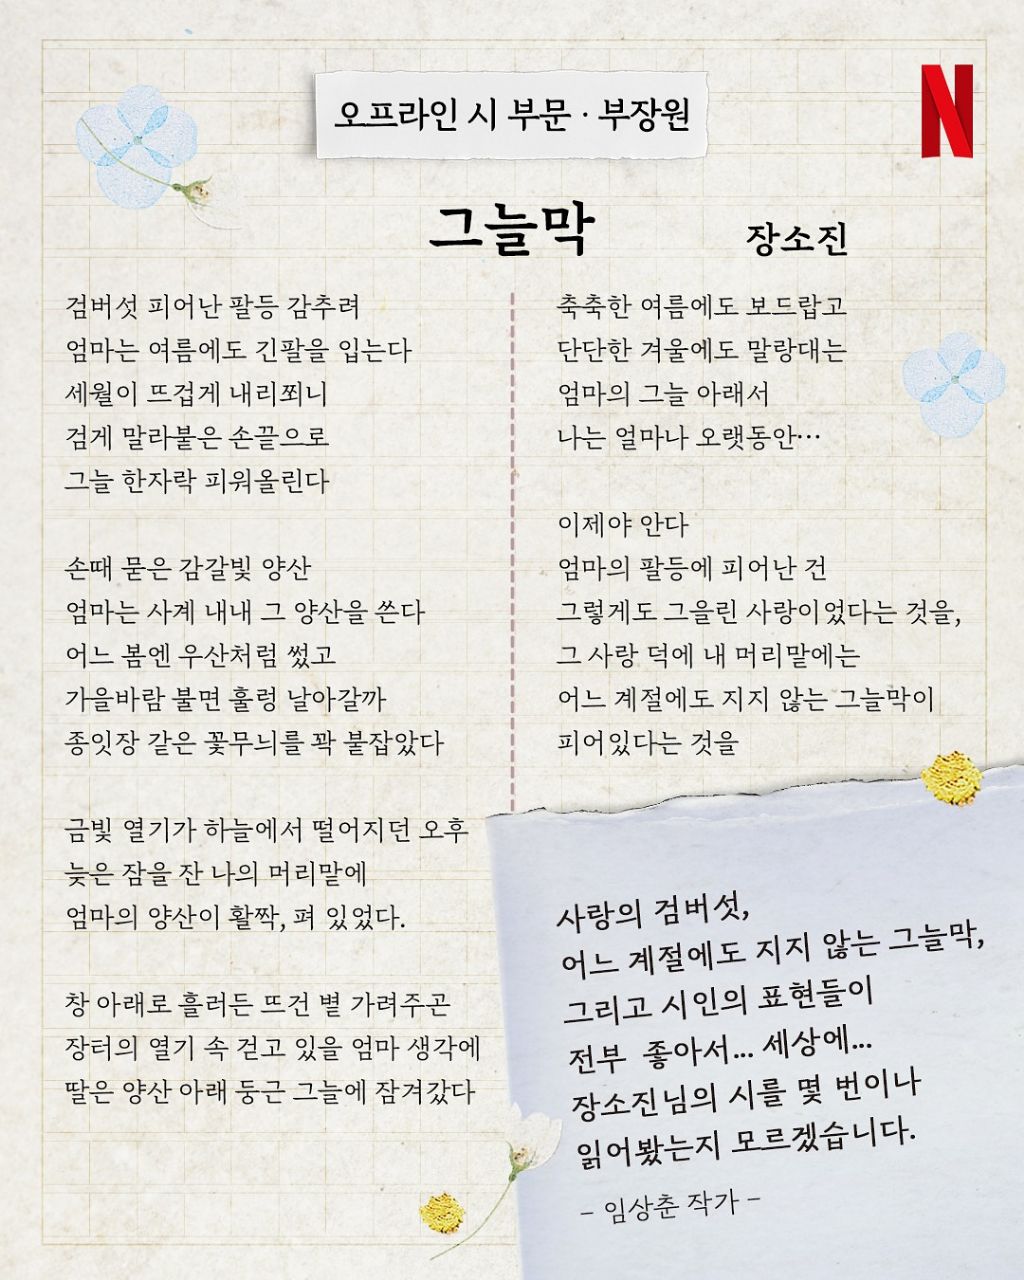 오프라인 시 부문 · 부장원
N
그늘막
장소진
검버섯 피어난 팔등 감추려
엄마는 여름에도 긴팔을 입는다
세월이 뜨겁게 내리쬐니
검게 말라붙은 손끝으로
그늘 한자락 피워올린다
손때 묻은 감갈빛 양산
엄마는 사계 내내 그 양산을 쓴다
어느 봄엔 우산처럼 썼고
가을바람 불면 훌렁 날아갈까
종잇장 같은 꽃무늬를 꽉 붙잡았다
금빛 열기가 하늘에서 떨어지던 오후
늦은 잠을 잔 나의 머리맡에
엄마의 양산이 활짝, 펴 있었다.
창 아래로 흘러든 뜨건 볕 가려주곤
장터의 열기 속 걷고 있을 엄마 생각에
딸은 양산 아래 둥근 그늘에 잠겨갔다
축축한 여름에도 보드랍고
단단한 겨울에도 말랑대는
엄마의 그늘 아래서
나는 얼마나 오랫동안…
이제야 안다
엄마의 팔등에 피어난 건
그렇게도 그을린 사랑이었다는 것을,
그 사랑 덕에 내 머리맡에는
어느 계절에도 지지 않는 그늘막이
피어있다는 것을
사랑의 검버섯,
어느 계절에도 지지 않는 그늘막,
그리고 시인의 표현들이
전부 좋아서... 세상에...
장소진님의 시를 몇 번이나
읽어봤는지 모르겠습니다.
- 임상춘 작가 -